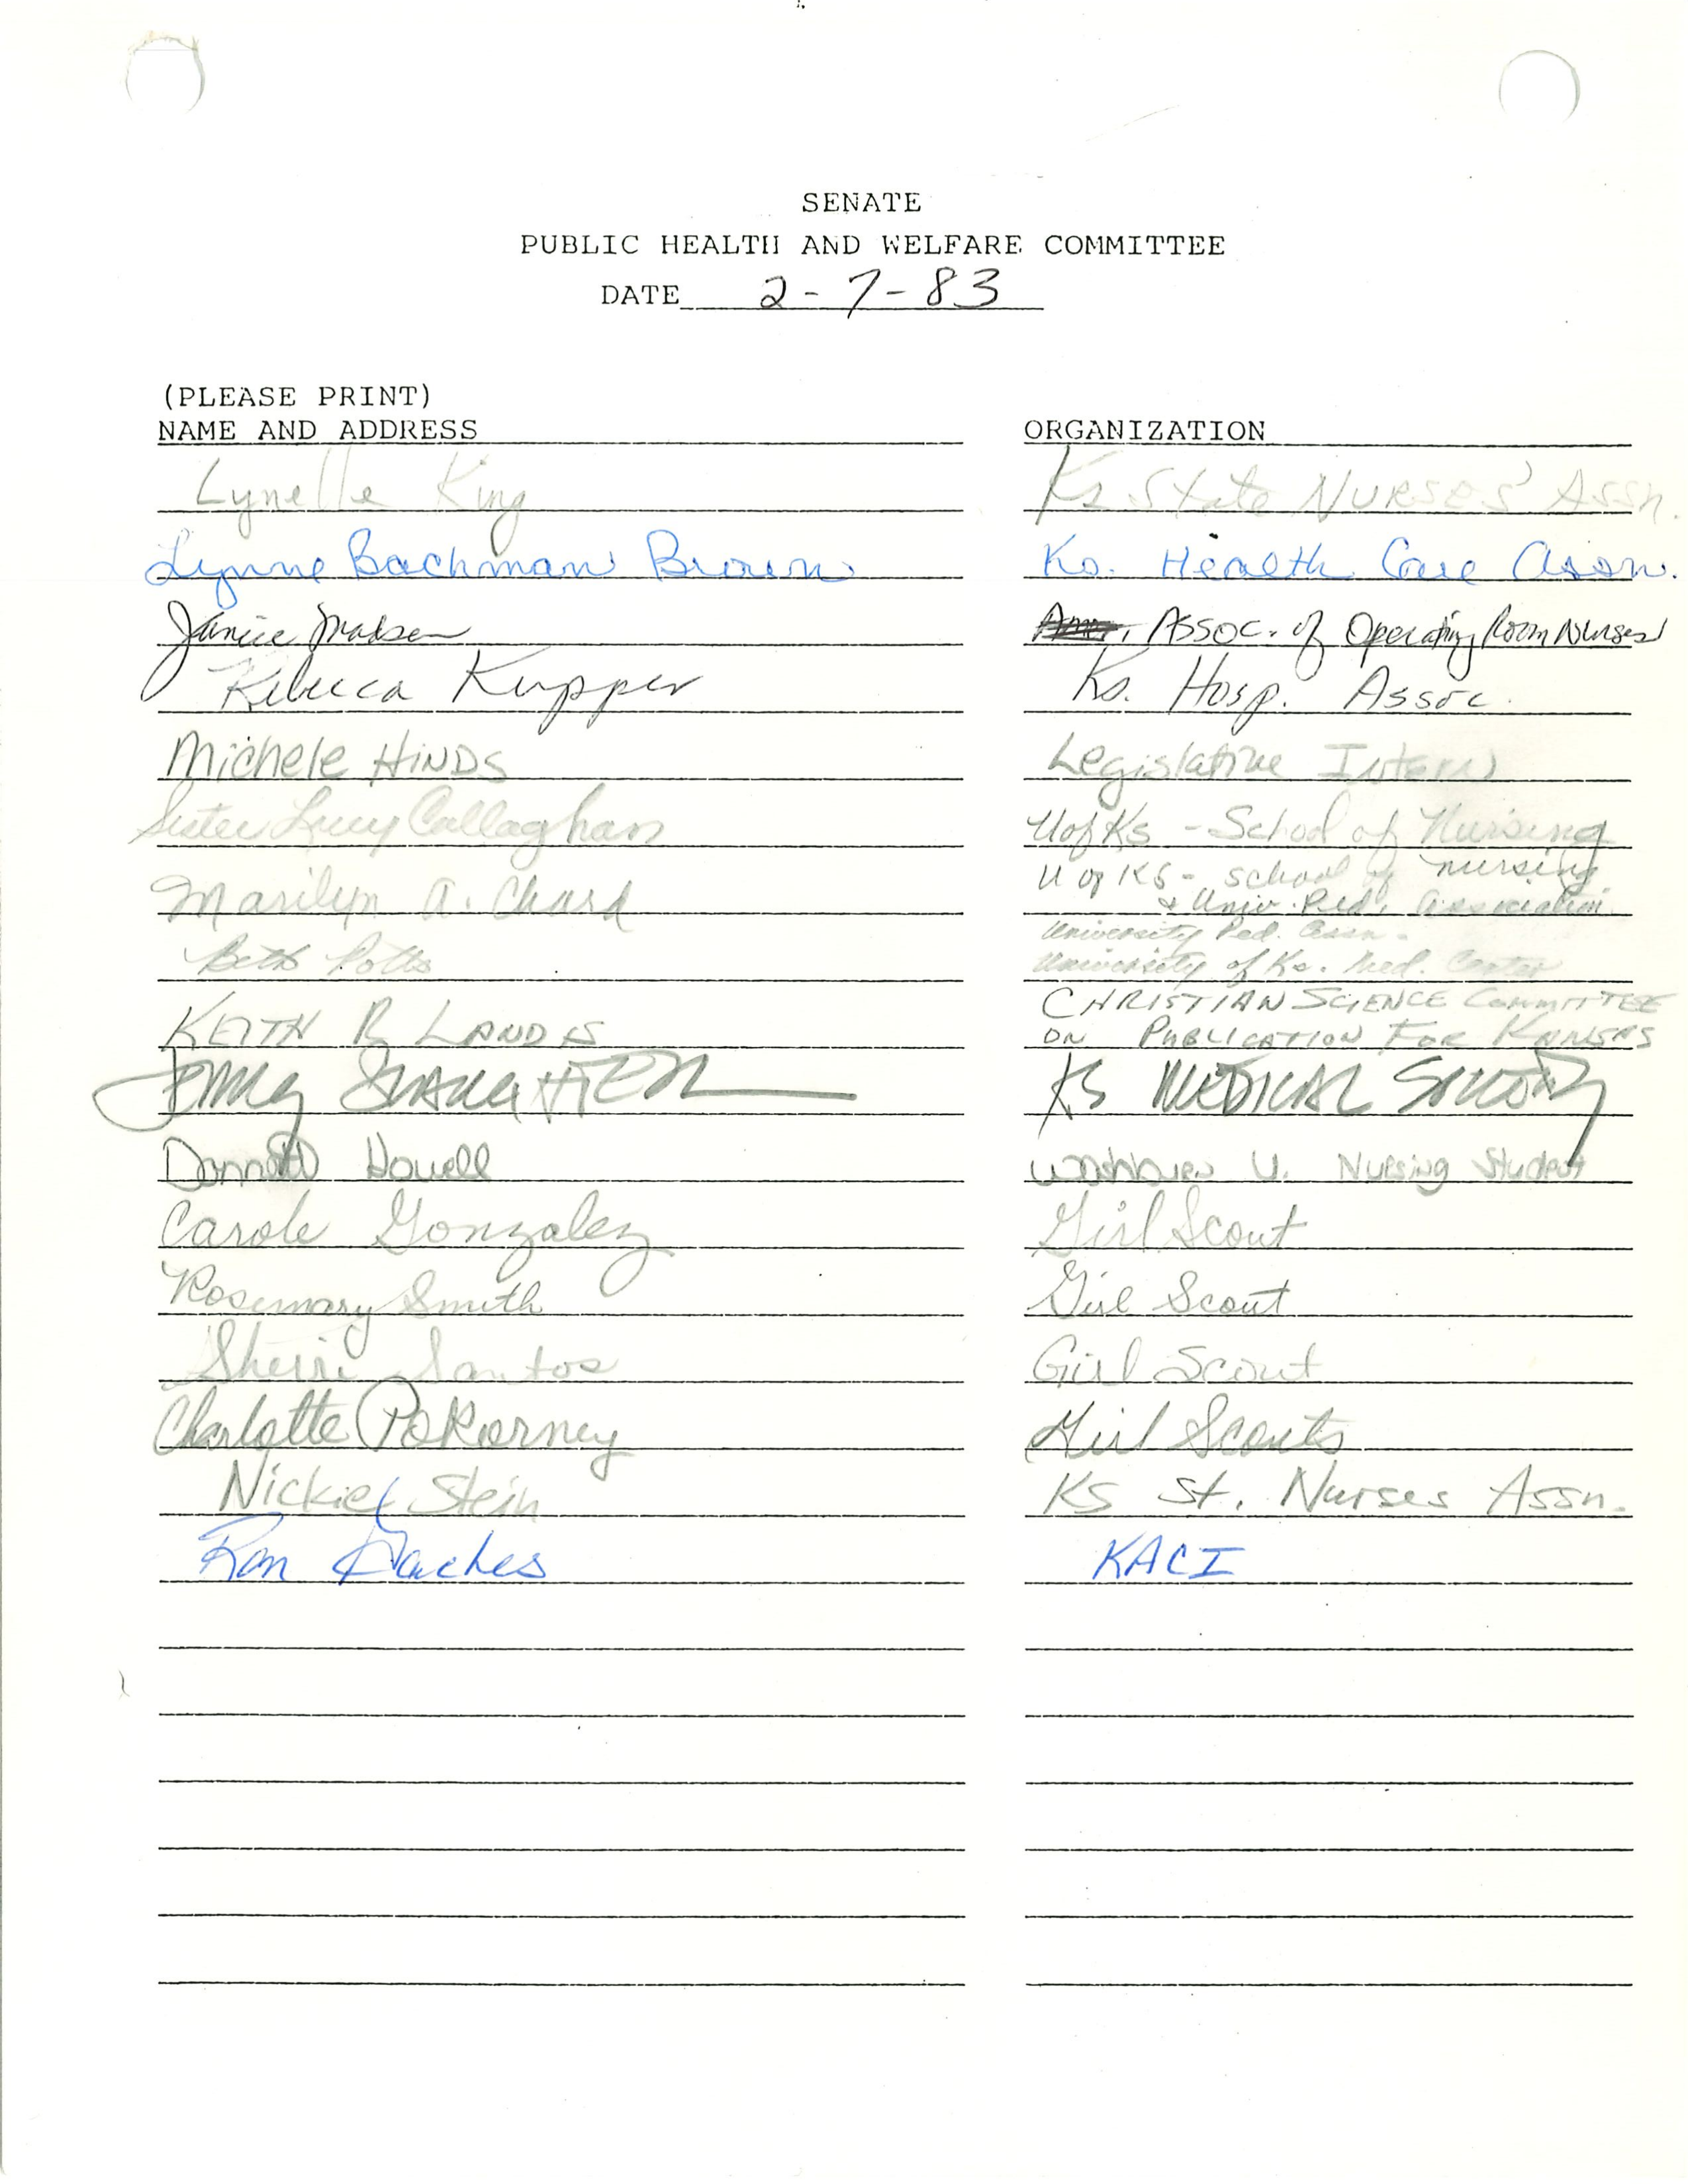 SENATE
PUBLIC HEALTH AND WELFARE COMMITTEE
DATE 2-7-83
(PLEASE PRINT)
NAME AND ADDRESS ORGANIZATION
Lynelle King Ks State NURSES' ASSn.
Lynne Bachman Brown Ks. Health Care Assn.
Janice Madsen Assoc. of Operating Room Nurses
Rebecca Kupper Ks. Hosp. Assoc.
Michele HINDS Legislative Intern
Sister Lucy Callaghan U of Ks - School of Nursing
Marilyn A. Chard U of KS - school of nursing
& Univ. Ped. Association
University Ped. Assn.
Beth Potts University of Ks. Med. Center
CHRISTIAN SCIENCE COMMITTEE
KEITH R LANDIS ON PUBLICATION FOR KANSAS
JERRY SLAUGHTER KS MEDICAL SOCIETY
Howell Washburn U. Nursing Student
Carole Gonzalez Girl Scout
Rosemary Smith Girl Scout
Sherri Santos Girl Scout
Charlotte Pokorney Girl Scouts
Nickie Stein KS St. Nurses Assn.
Ron Gaches KACI